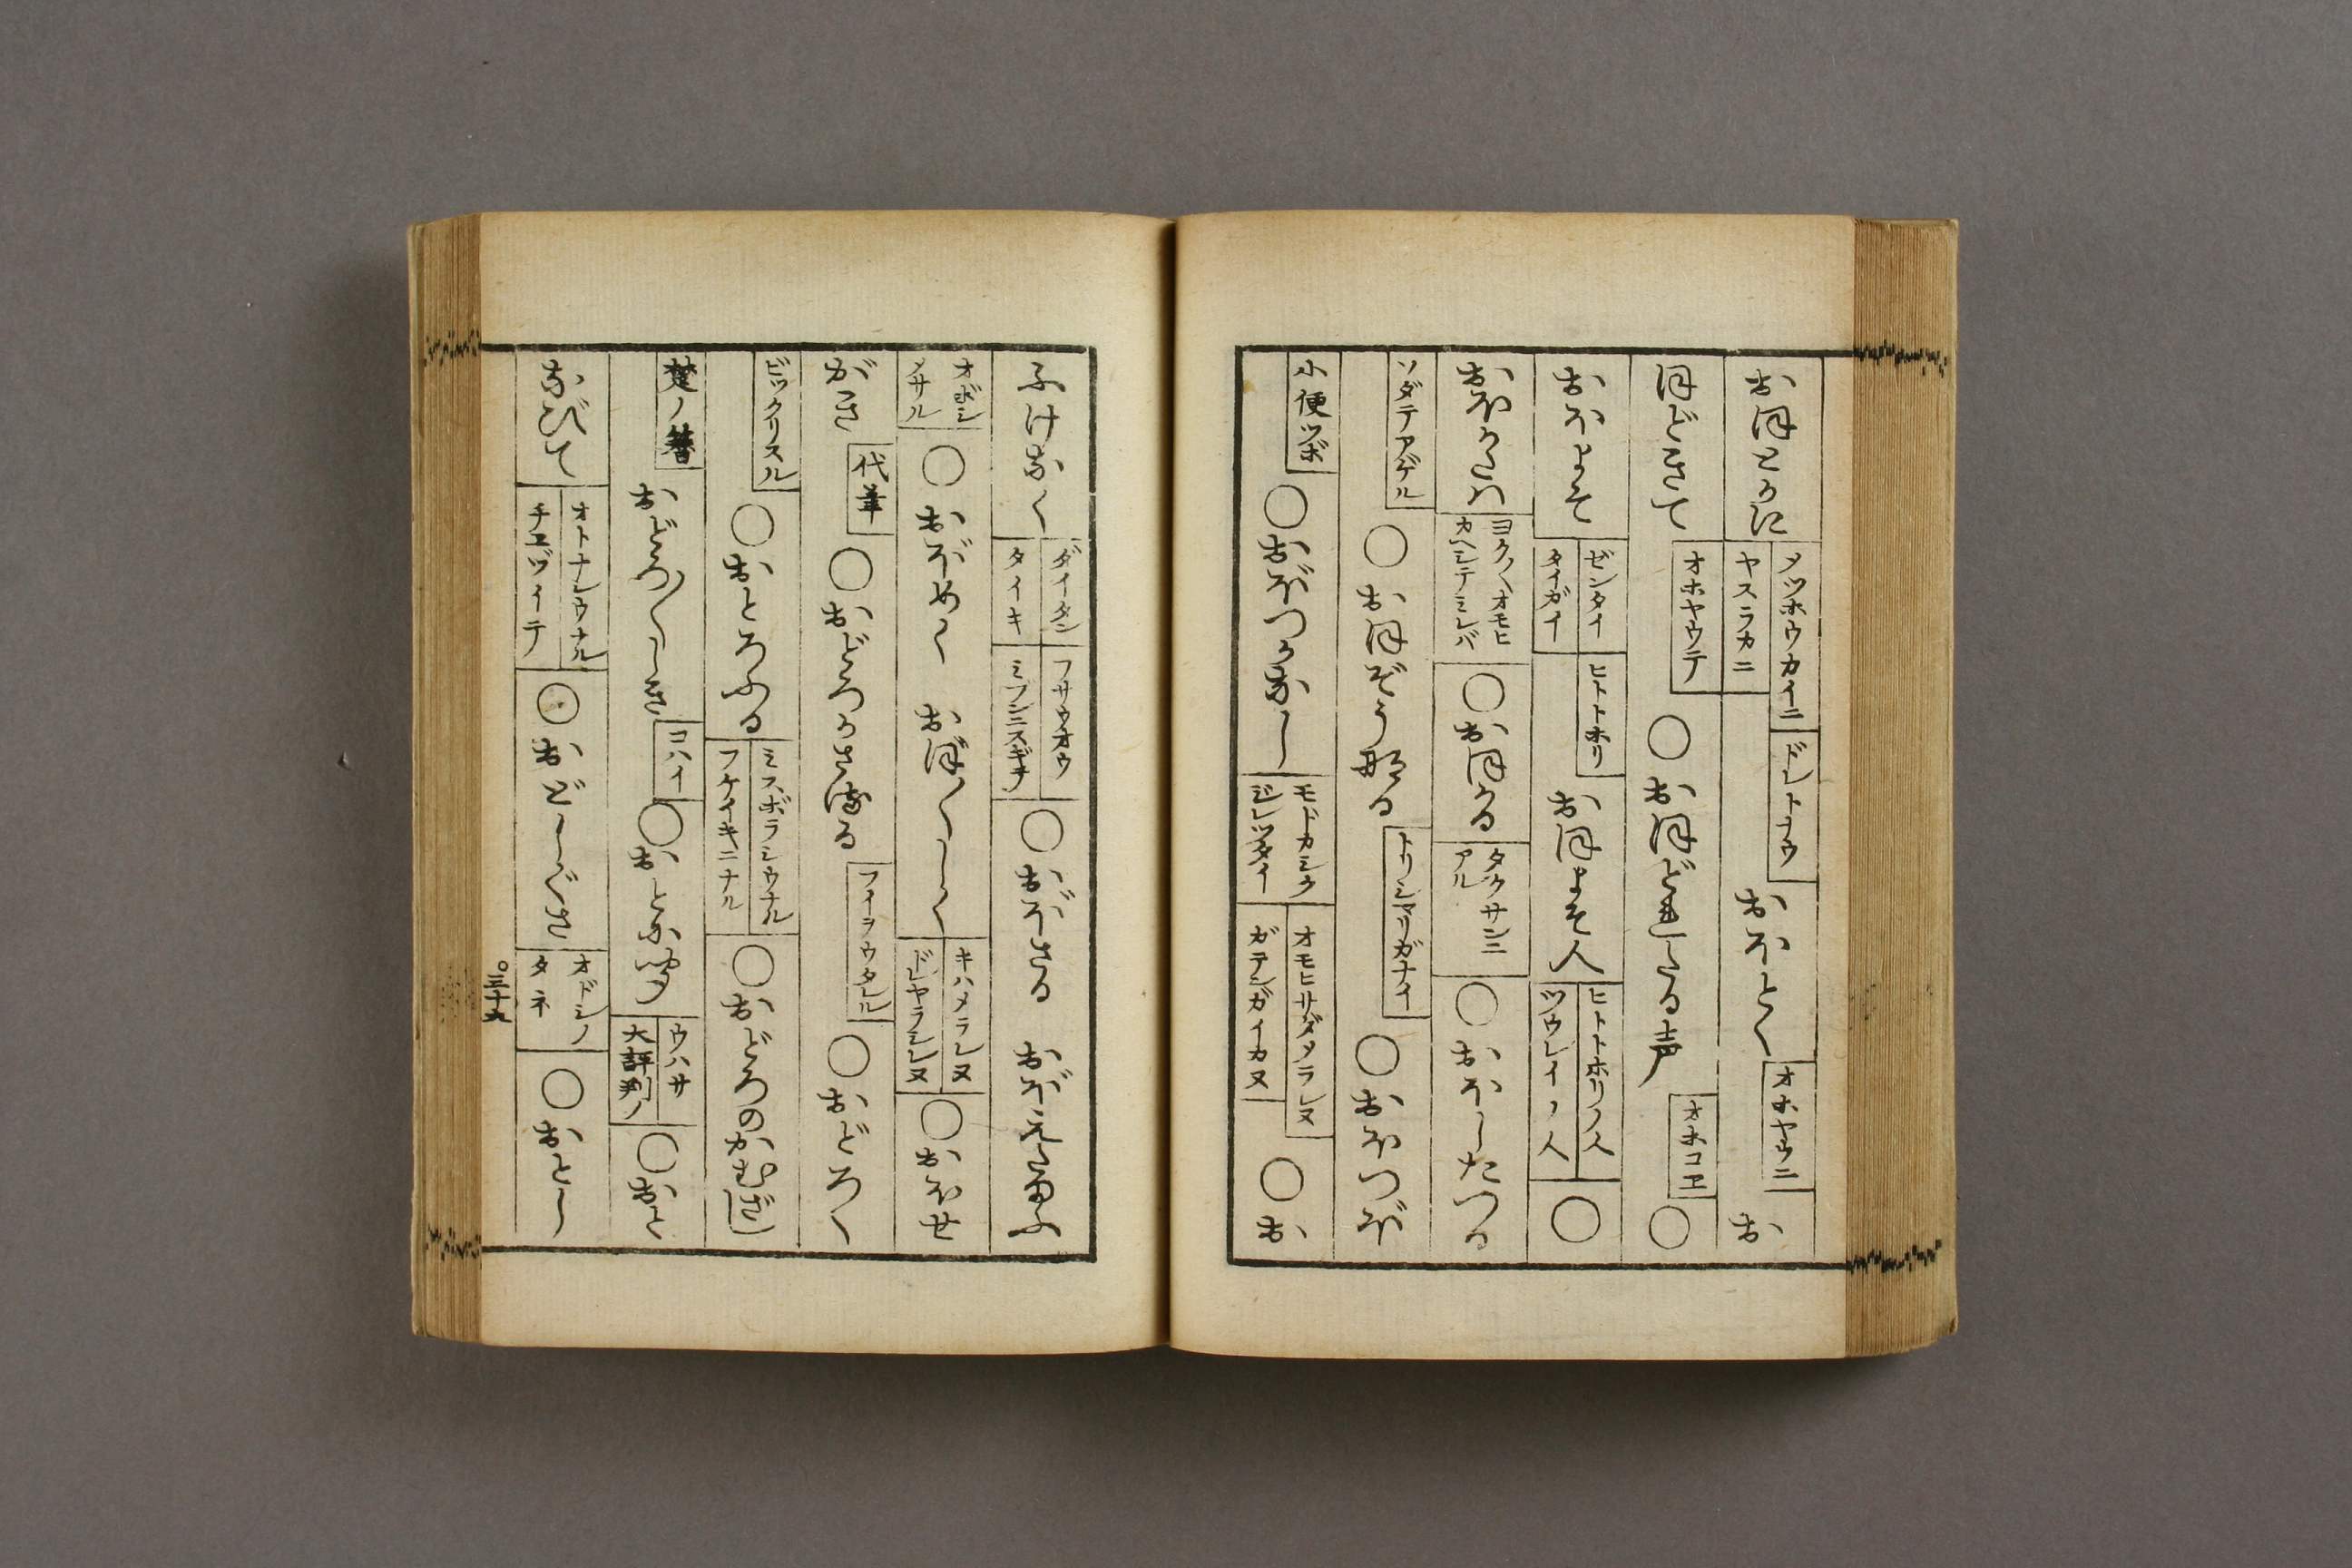 おほどかに メツホウカイニ ヤスラカニ ドントナウ おほとく オホヤウニ お
ほどきて オホヤウテ ○おほどれたる声 オホコエ ○
おほよそ ゼンタイ タイガイ ヒトトホリ おほよそ人 ヒトトホリノ人 ツウレイノ人 ○
おほくは ヨク〱オモヒ カヘシテミレバ ○おほかる タクサンニ アル ○おほしたつる
ソダテアゲル ○おほぞう那る トリシマリガナイ ○おほつぼ
小便ツボ ○おぼつかなし モドカシウ ジレツタイ オモヒサダメラレヌ ガテンガイカヌ ○お
ふけなく ダイタン タイキ フサウオウ ミブンニスギテ ○おぼさる おぼえたまふ
オボシ メサル ○おぼめく おぼ〱しく キハメラレヌ ドレヤラシレヌ ○おほせ
がき 代筆 ○おどろかさるる フイヲウタレル ○おどろく
ビツクリスル ○おとろふる ミスボラシウナル フケイキニナル ○おどろのかむざし
楚ノ簪 おどろ〱しき コハイ ○おとに聞 ウハサ 大評判ノ ○おと
なびて オトナシウナル チエヅイテ ○おどしぐさ オドシノ タネ ○おとし
○三十九